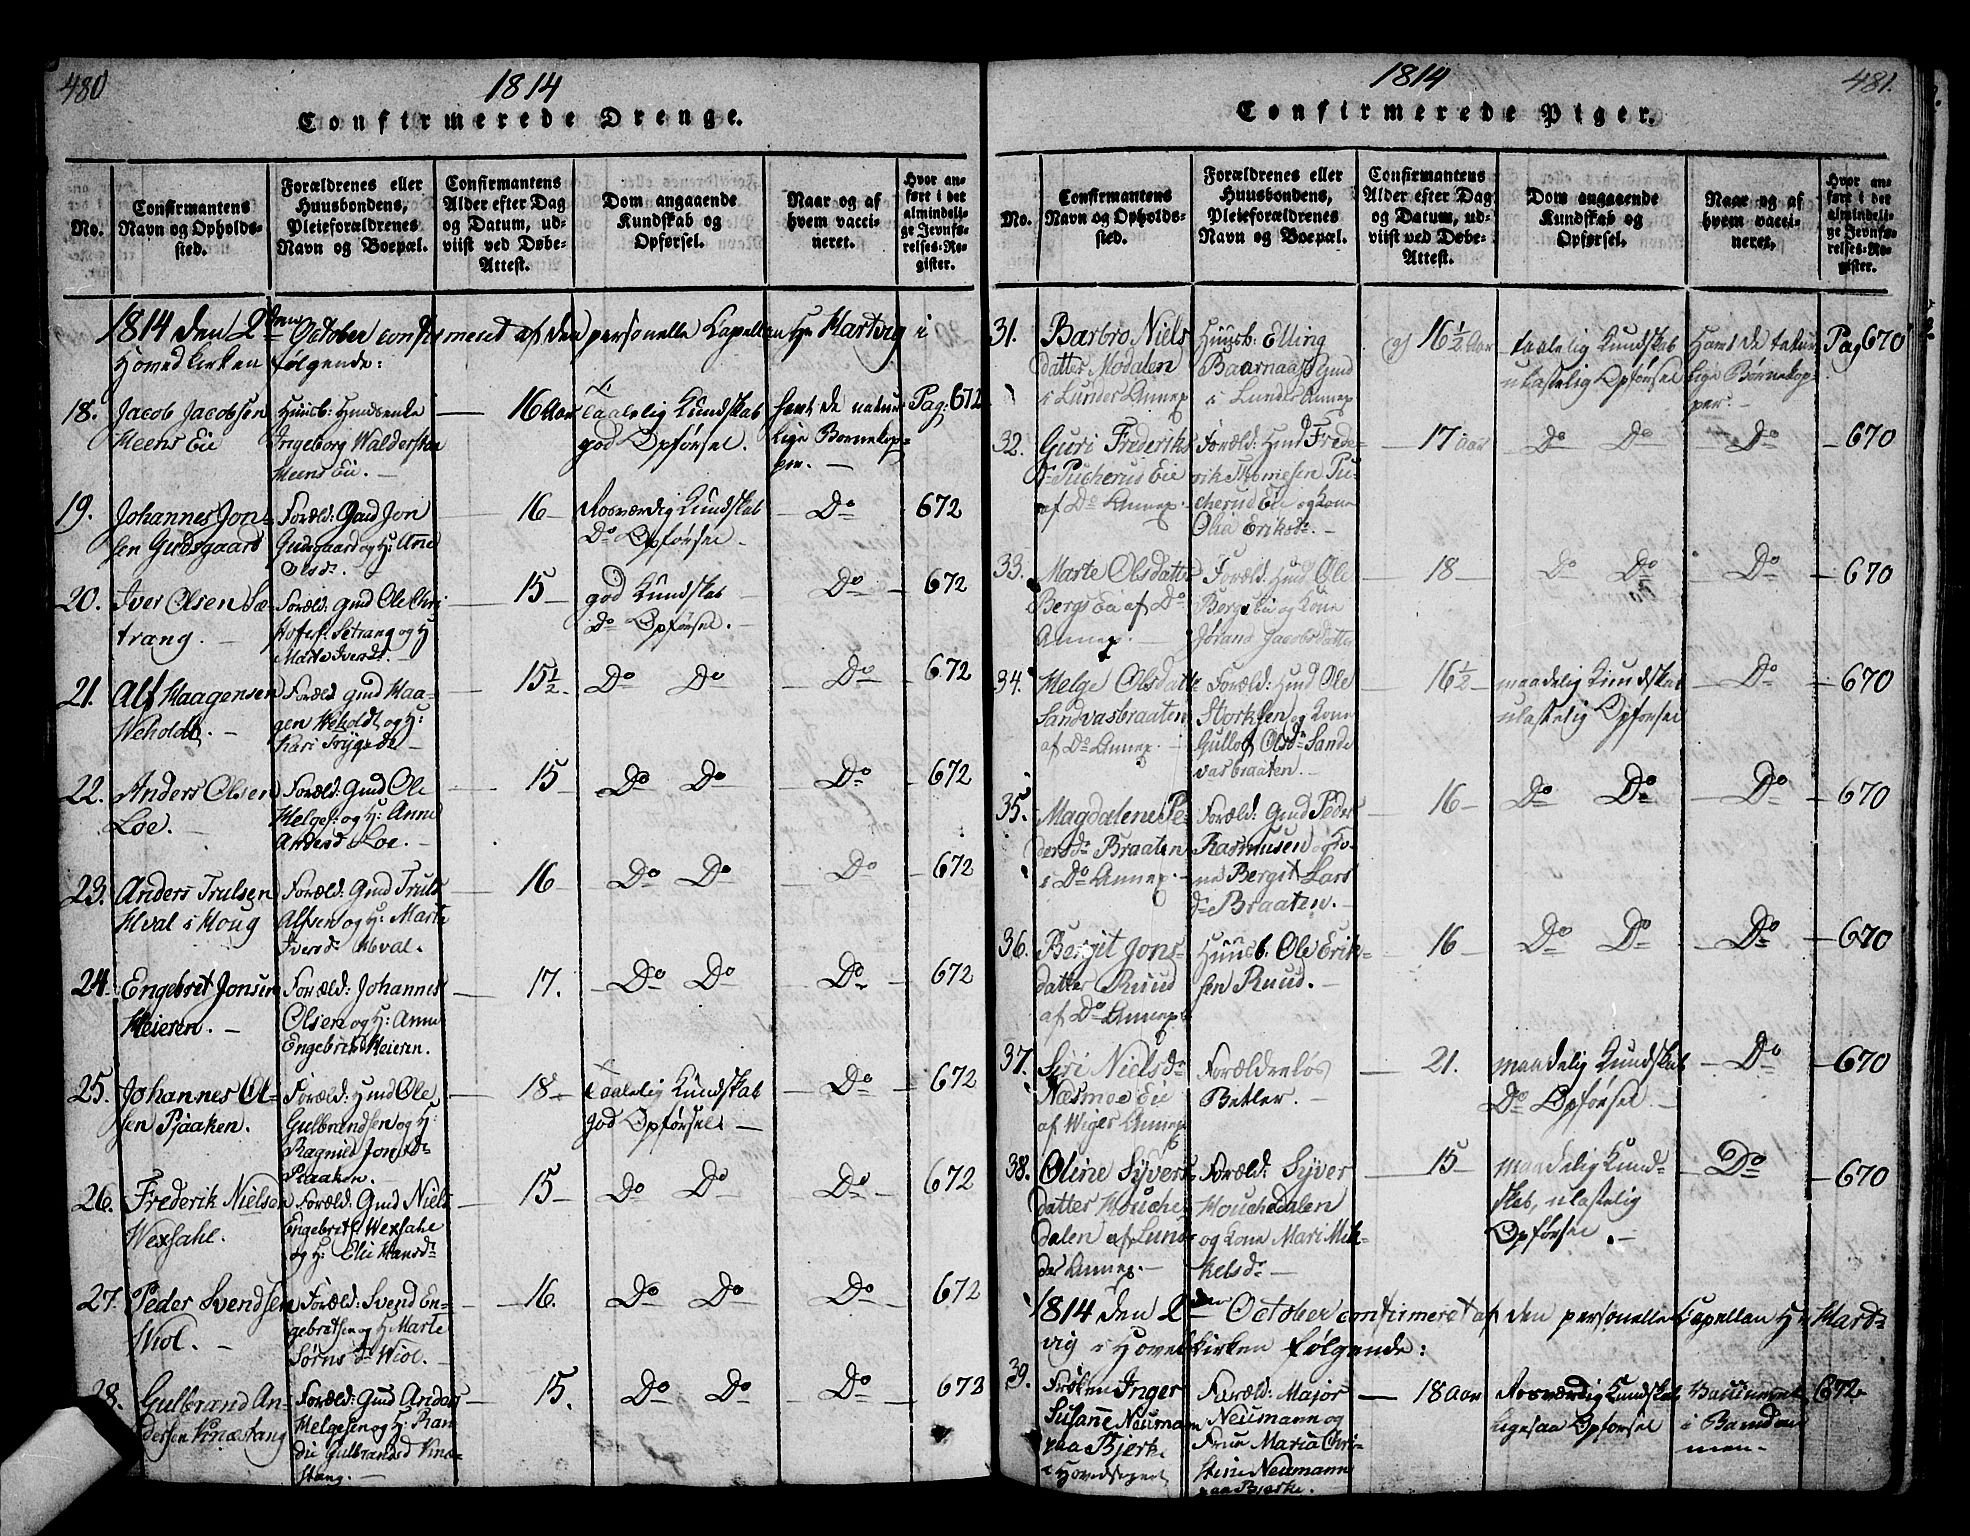 480
1814
Confirmerede Drenge.
No.
Confirmantens
Navn og Opholds-
sted.
Forældrenes eller
Huusbondens,
Pleieforældrenes
Navn og Boepæl.
Confirmantens
Alder efter Dag
og Datum, ud-
viist ved Døbe-
Attest.
Dom angaaende
Kundskab og
Opførsel.
Naar og af
hvem vacci-
neret.
Hvor an-
ført i det
almindeli-
ge Jevnfø-
relses-Re-
gister.
1814 den 2den October confirmeret af den personelle Capellan Hr Hartvig i
Hovedkirken følgende:
18.
Jacob Jacobsen
Heens Eie
Huusb: Huusenke
Ingeborg Waldersten
Heens Eie.
16 Aar
taalelig Kundskab
god Opførsel.
havt de natur
lige Børnekop-
per.
Pag: 672
19.
Johannes Jon-
sen Gudsgaard
Foræld: Gmd Jon
Gudsgaard og H: Anne
Olsdr.
16
Roesværdig Kundskab
Do Opførsel
Do
672
20.
Iver Olsen Sæ
trang.
Foræld: Gmd Ole Chri
stofs: Setrang og H:
Marte Iversdr.
15
god Kundskab
Do Opførsel.
Do
672
21.
Alf Haagensen
Veholdt.
Foræld Gmd Haa-
gen Veholdt og H:
Kari Trygsdr
15½
Do Do
Do
672
22.
Anders Olsen
Loe.
Foræld: Gmd Ole
Helges: og H: Anne
Andersd Loe.
15
Do Do
Do
672
23.
Anders Trulsen
Hval i Houg
Foræld: Gmd Truls
Alfsen og H: Marte
Iversdr Hval.
16
Do Do
Do
672
24.
Engebret Jonsen
Heieren.
Foræld: Johannes
Olsen og H: Anne
Engebretsd Heieren.
17.
Do Do
Do
672
25.
Johannes Ol-
sen Pjaaken.
Foræld: Hmd Ole
Gulbrandsen og H:
Ragnild Jonsdr
Plaaken.
18
taalelig Kundskab
god Opførsel.
Do
672
26.
Frederik Nielsen
Vexsahl.
Foræld: Gmd Niels
Engebrets Vexsahl
og H: Elie Hansdr
15
Do Do
Do
672
27.
Peder Svendsen
Wiol.
Foræld: Svend En-
gebretsen og H: Marte
Sørnsdr Wiol.
16.
Do Do
Do
672
28.
Gulbrand An-
dersen Knæstang
Foræld: Gmd Anders
Helgesen og H: Ran
die Gulbrandsd Knæ-
stang.
15.
Do Do
Do
672
1814
481.
Confirmerede Piger.
No.
Confirmantens
Navn og Opholds-
sted.
Forældrenes eller
Huusbondens,
Pleieforældrenes
Navn og Boepæl.
Confirmantens
Alder efter Dag
og Datum, ud-
viist ved Døbe-
Attest.
Dom angaaende
Kundskab og
Opførsel.
Naar og af
hvem vacci-
neret.
Hvor an-
ført i det
almindeli-
ge Jevnfø-
relses-Re-
gister.
31.
Barbro Niels
datter Modalen
i Lunder Annex
Huusb: Elling
Baarnaas Gmd
i Lunder Annex
16½ Aar
taalelig Kundskab
ulastelig Opførsel
Havt de natur
lige Børnekop-
per.
Pag 670
32.
Guri Frederiks
dr Pucherus Eie
af Do Annex.
Foræld: Hmd Frede-
rik Thomesen Pu-
cherud Eie og Kone
Olia Eriksdr.
17 Aar
Do Do
Do
670
33.
Marte Olsdatter
Bergs Eie af Do
Annex.
Foræld: Hmd Ole
Bergs Eie og Kone
Jørand Jacobsdatter
18
Do Do
Do
670
34.
Helge Olsdatter
Sandvasbraaten
af Do Annex.
Foræld: Hmd Ole
Storksen og Kone
Gullog Olsdr Sand
vasbraaten.
16½
maadelig Kundskab
ulastelig Opførsel
Do
670
35.
Magdalene Pe-
dersdr Braaten
i Do Annex.
Foræld: Gmd Peder
Rasmusen og Ko-
ne Bergit Lars
dr Braaten.
16
Do Do
Do
670
36.
Bergit Jons-
datter Ruud
af Do Annex
Huusb. Ole Erik-
sen Ruud.
16
Do Do
Do
670
37.
Siri Nielsdr
Næsmoe Eie
af Wiger Annex
Forældreløs
Betler.
21.
maadelig Kundskab
Do Opførsel
Do
670
38.
Oline Syvers
datter Houche
dalen af Lun-
der Annex.
Foræld: Syver
Houchedalen
og Kone Mari Mik-
kelsdr
15
maadelig Kund-
skab, ulastelig
Opførsel.
Do
670
1814 den 2den October confirmeret af den personelle Capellan Hr Hart-
vig i Hovedkirken følgende:
39.
Frøken Inger
Susanne Neumann
paa Bjerke
i Hovedsognet
Foræld: Major
Neumann og
Frue Maria Chri-
stine Neumann
paa Bjerke.
18 Aar
Roesværdig Kundskab
ligesaa Opførsel
Vaccineret
i Barndom
men.
672